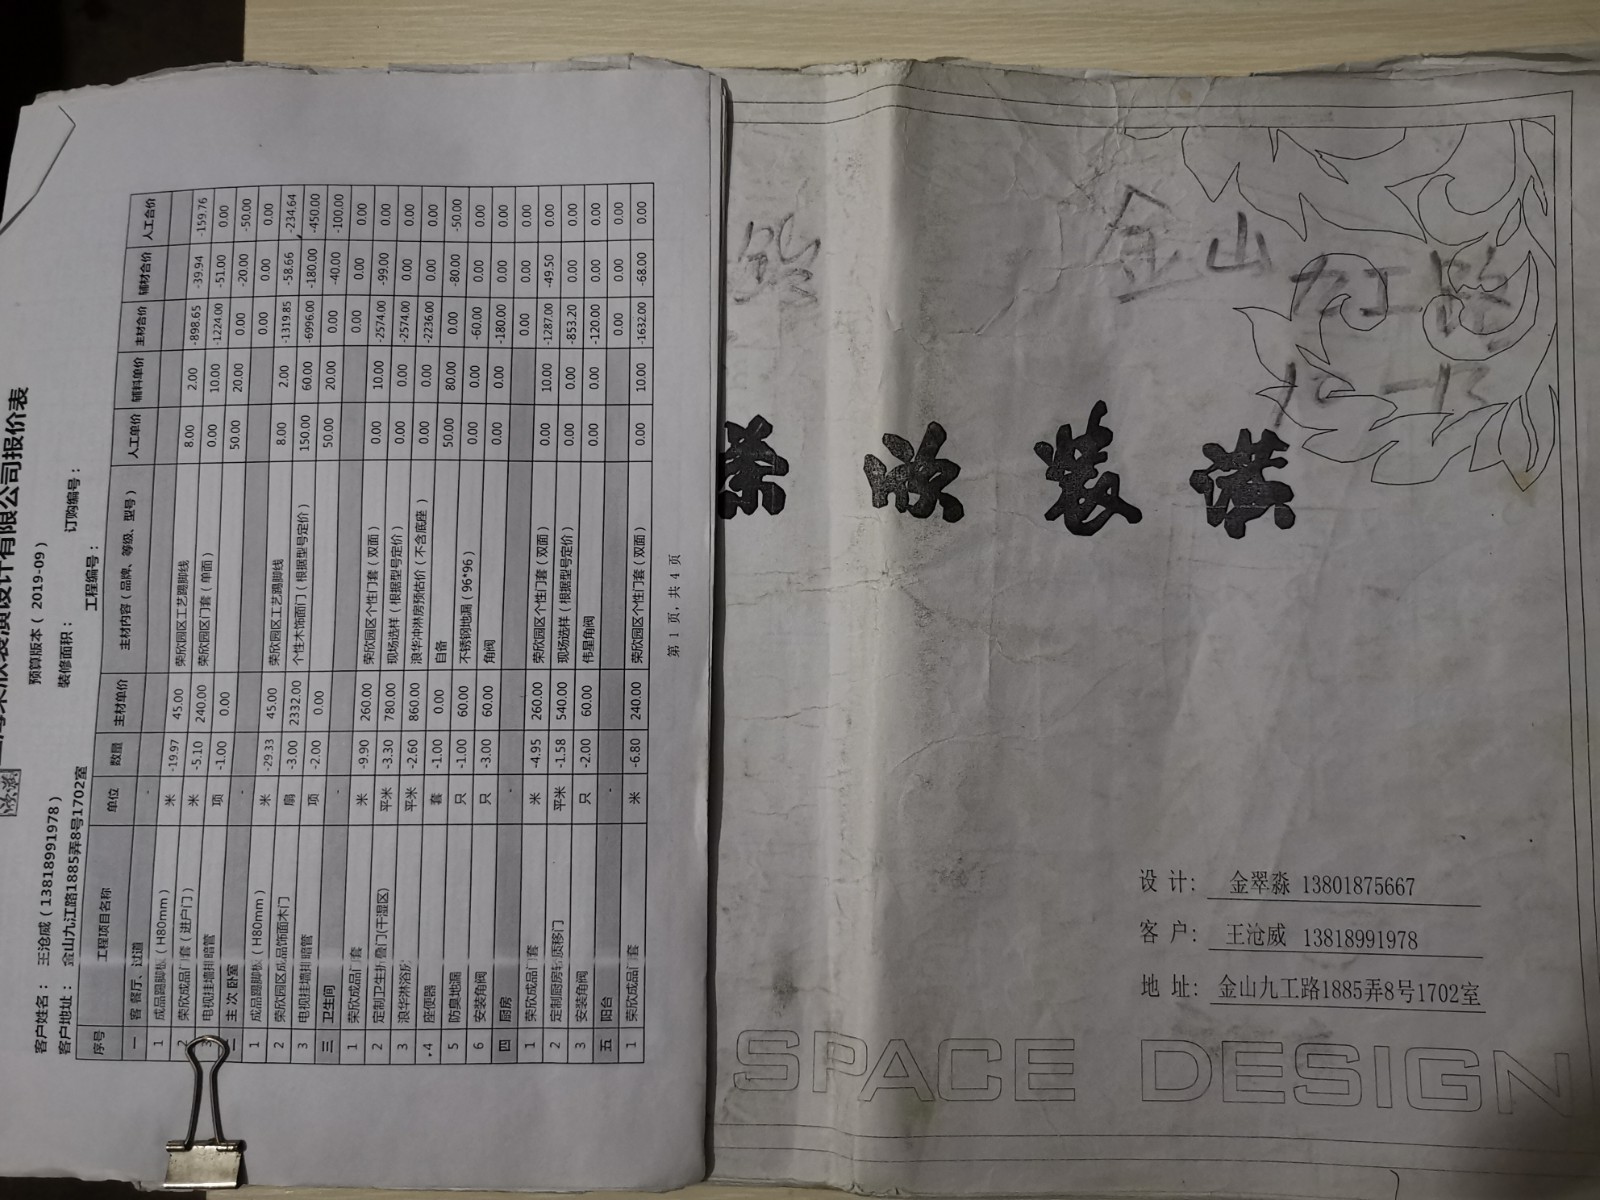 荣欣装潢设计有限公司报价表
预算版本（2019-09）
客户姓名： 王沧威（13818991978） 装修面积： 订购编号：
客户地址： 金山九江路1885弄8号1702室 工程编号：
序号 工程项目名称 单位 数量 主材单价 主材内容（品牌、等级、型号） 人工单价 辅料单价 主材合价 辅材合价 人工合价
一 客餐厅、过道 -
1 成品踢脚板（H80mm） 米 -19.97 45.00 荣欣园区工艺踢脚线 8.00 2.00 -898.65 -39.94 -159.76
2 荣欣成品门套（进户门） 米 -5.10 240.00 荣欣园区门套（单面） 0.00 10.00 -1224.00 -51.00 0.00
3 电视挂墙排暗管 项 -1.00 0.00 50.00 20.00 0.00 -20.00 -50.00
二 主次卧室 - 0.00 0.00 0.00
1 成品踢脚板（H80mm） 米 -29.33 45.00 荣欣园区工艺踢脚线 8.00 2.00 -1319.85 -58.66 -234.64
2 荣欣园区成品饰面木门 扇 -3.00 2332.00 个性木饰面门（根据型号定价） 150.00 60.00 -6996.00 -180.00 -450.00
3 电视挂墙排暗管 项 -2.00 0.00 50.00 20.00 0.00 -40.00 -100.00
三 卫生间 - 0.00 0.00 0.00
1 荣欣成品门套 米 -9.90 260.00 荣欣园区个性门套（双面） 0.00 10.00 -2574.00 -99.00 0.00
2 定制卫生折叠门(干湿区) 平米 -3.30 780.00 现场选样（根据型号定价） 0.00 0.00 -2574.00 0.00 0.00
3 浪华淋浴房 平米 -2.60 860.00 浪华冲淋房预估价（不含底座） 0.00 0.00 -2236.00 0.00 0.00
4 座便器 套 -1.00 0.00 自备 50.00 80.00 0.00 -80.00 -50.00
5 防臭地漏 只 -1.00 60.00 不锈钢地漏（96*96） 0.00 0.00 -60.00 0.00 0.00
6 安装角阀 只 -3.00 60.00 角阀 0.00 0.00 -180.00 0.00 0.00
四 厨房 - 0.00 0.00 0.00
1 荣欣成品门套 米 -4.95 260.00 荣欣园区个性门套（双面） 0.00 10.00 -1287.00 -49.50 0.00
2 定制厨房轻质移门 平米 -1.58 540.00 现场选样（根据型号定价） 0.00 0.00 -853.20 0.00 0.00
3 安装角阀 只 -2.00 60.00 伟星角阀 0.00 0.00 -120.00 0.00 0.00
五 阳台 - 0.00 0.00 0.00
1 荣欣成品门套 米 -6.80 240.00 荣欣园区个性门套（双面） 0.00 10.00 -1632.00 -68.00 0.00
第 1 页，共 4 页
金山
九工路
荣欣装潢
设 计： 金翠淼 13801875667
客 户： 王沧威 13818991978
地 址： 金山九工路1885弄8号1702室
SPACE DESIGN